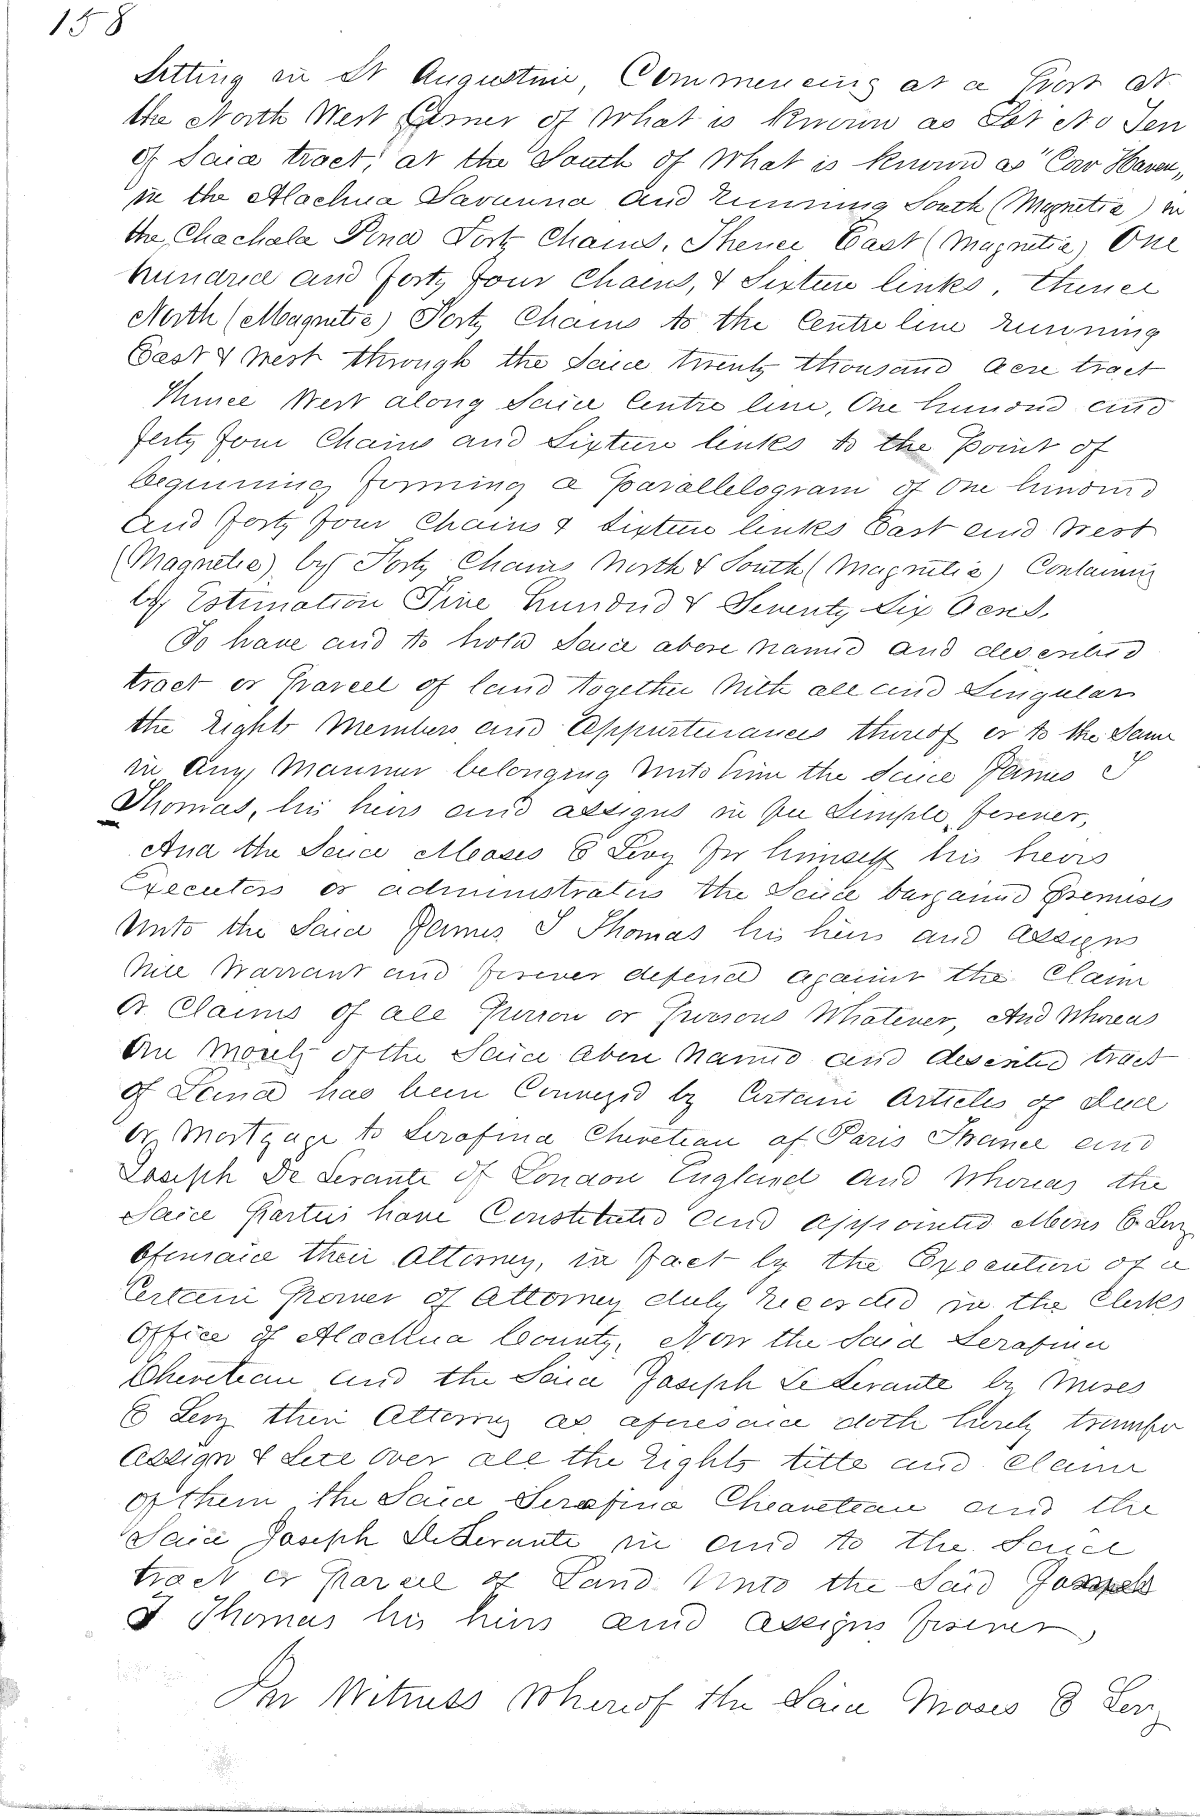 158
Sitting in St Augustine, Commencing at a Post at
the North West Corner of What is known as Lot No Ten
of Said tract, at the South of What is known as "Cow Haven"
in the Alachua Savanna and running South (Magnetic) in
the Chachala Pond Forty Chains, Thence East (Magnetic) One
hundred and forty four Chains, & Sixteen links, thence
North (Magnetic) Forty Chains to the Centre line running
East & West through the Said twenty thousand Acre tract
Thence West along Said Centre line, One hundred and
forty four Chains and Sixteen links to the Point of
beginning forming a parallelogram of One hundred
and forty four Chains & Sixteen links East and West
(Magnetic) by Forty Chains North & South (Magnetic) Containing
by Estimation Five hundred & Seventy Six Acres.
To have and to hold Said above named and described
tract or Parcel of land together With all and Singular
the rights Members and Appurtenances thereof or to the Same
in Any Manner belonging Unto him the Said James T
Thomas, his heirs and assigns in fee Simple, forever,
And the Said Moses E Levy for himself his heirs
Executors or administrators the Said bargained Premises
Unto the Said James T Thomas his heirs and Assigns
Will Warrant and forever defend against the Claim
or Claims of all Person or Persons Whatever, And Whereas
One Moiety of the Said above Named and described tract
of Land has been Conveyed by Certain Articles of Deed
or Mortgage to Serafina Cheveteau of Paris France and
Joseph De Levante of London England and Whereas the
Said Parties have Constituted and appointed Moses E Levy
aforesaid their Attorney, in fact by the Execution of a
Certain Power of Attorney duly recorded in the Clerks
Office of Alachua County, Now the Said Serafina
Cheveteau and the Said Joseph De Levante by Moses
E Levy their Attorney as aforesaid doth hereby transfer
Assign & Sete over all the Rights title and Claim
of them the Said Serafina Cheaveteau and the
Said Joseph De Levante in and to the Said
tract or Parcel of Land Unto the Said
J Thomas his heirs and assigns forever,
In Witness Whereof the Said Moses E Levy